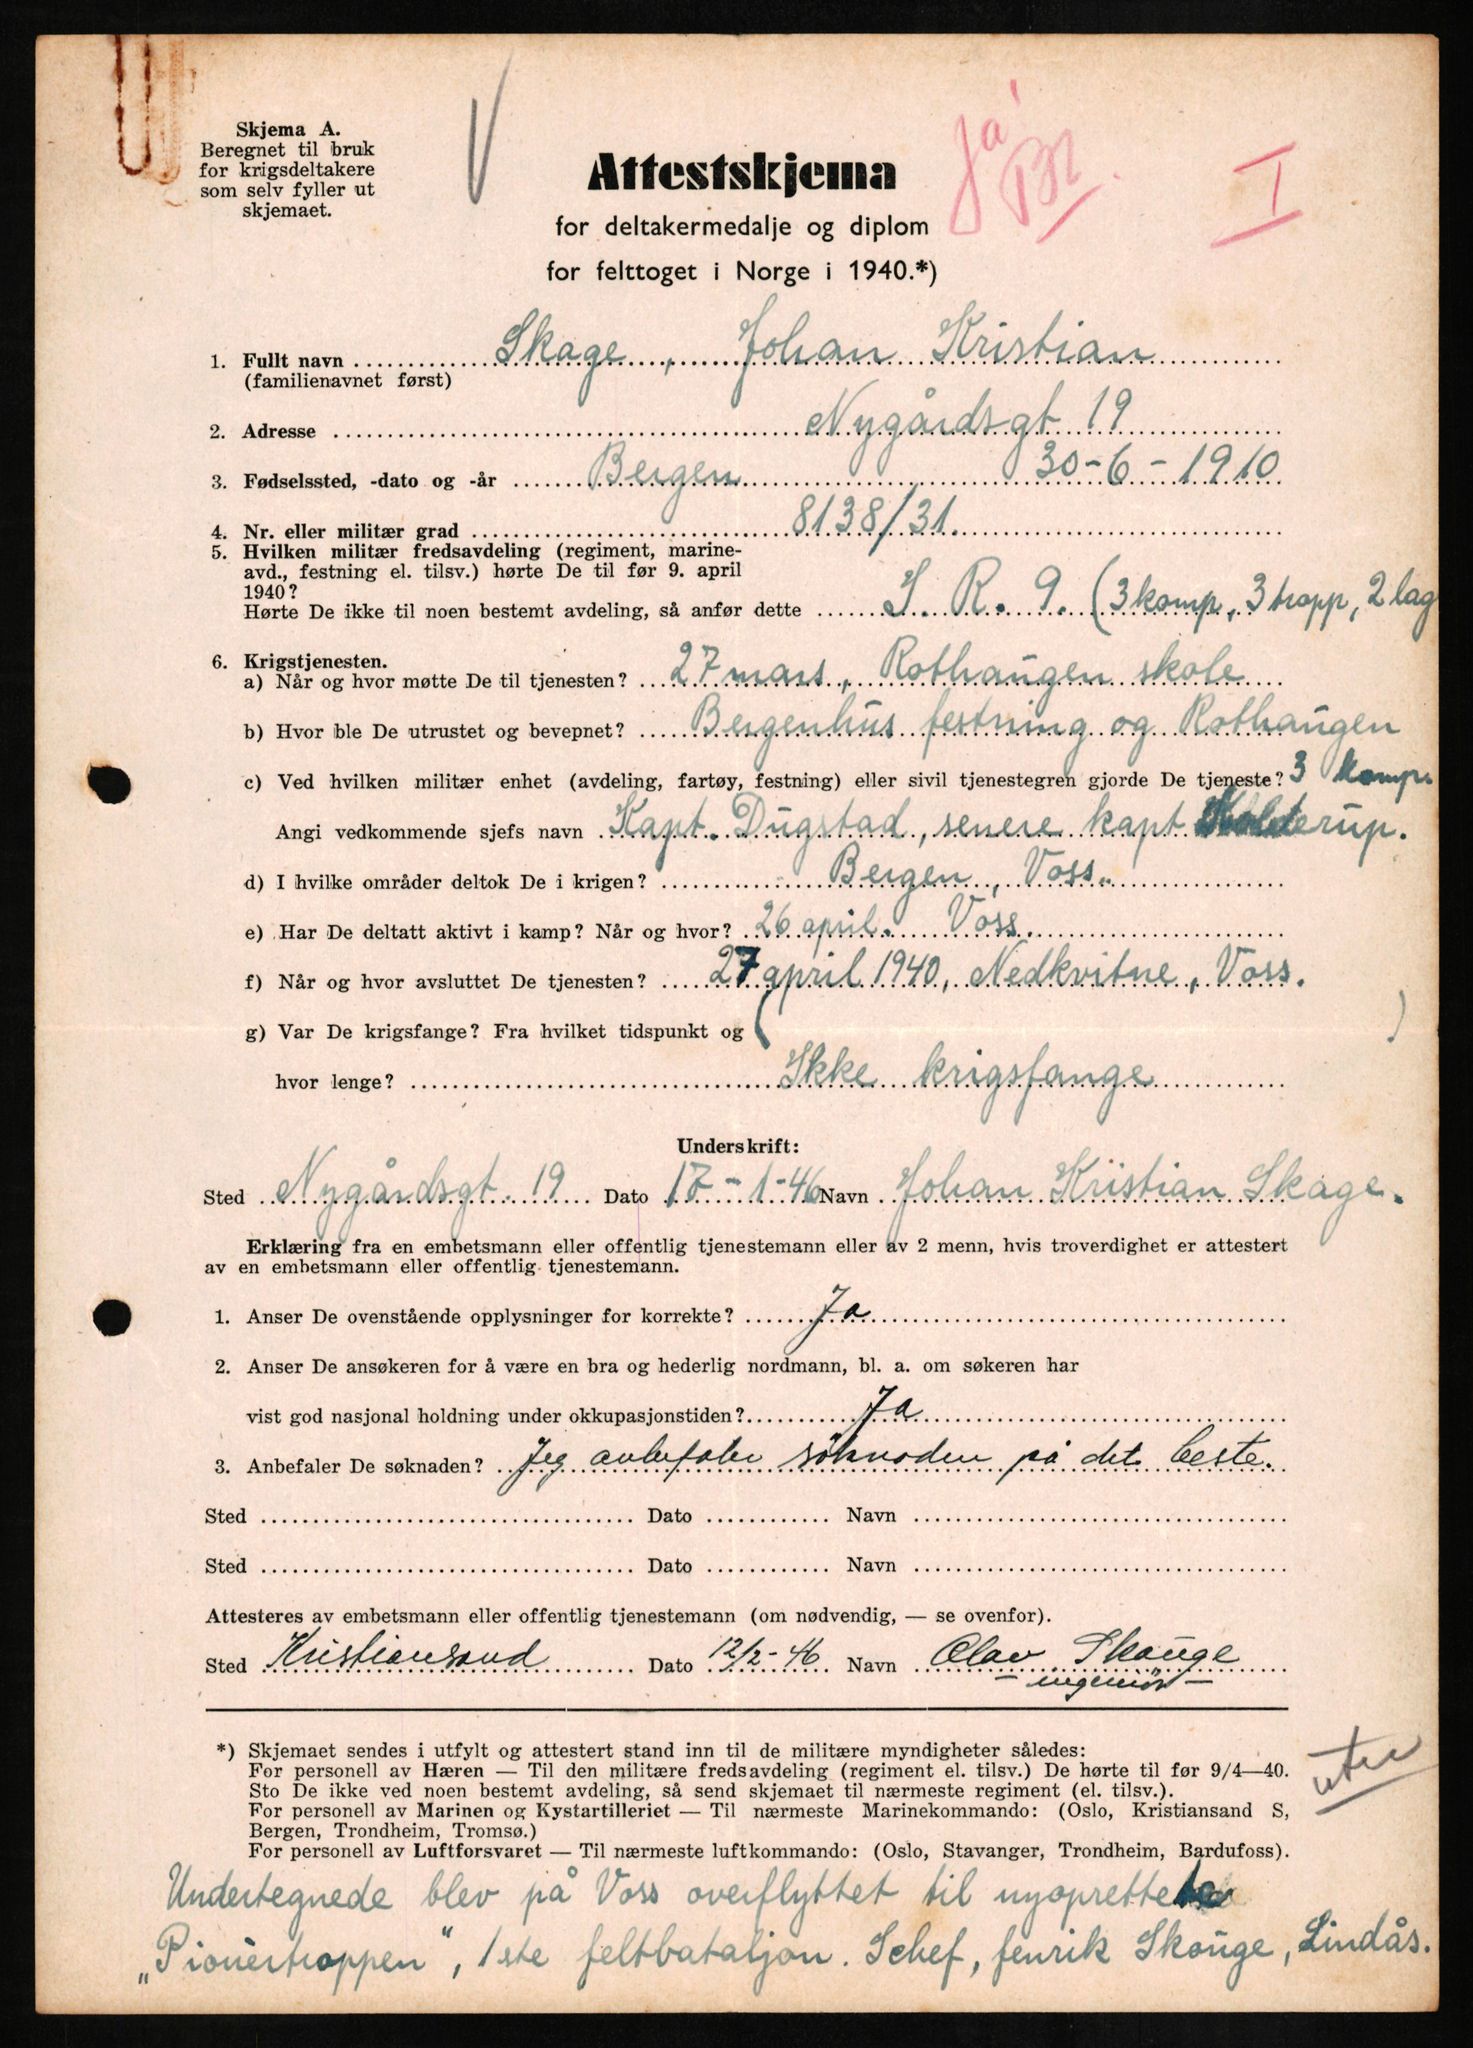 Skjema A.
Beregnet til bruk
for krigsdeltakere
som selv fyller ut
skjemaet.
V
ja
Br.
I
Attestskjema
for deltakermedalje og diplom
for felttoget i Norge i 1940.*)
1. Fullt navn Skage, Johan Kristian
(familienavnet først)
2. Adresse Nygårdsgt 19
3. Fødselssted, -dato og -år Bergen 30-6-1910
4. Nr. eller militær grad 8138/31.
5. Hvilken militær fredsavdeling (regiment, marine-
avd., festning el. tilsv.) hørte De til før 9. april
1940?
Hørte De ikke til noen bestemt avdeling, så anfør dette I. R. 9. (3 komp, 3 tropp, 2 lag
6. Krigstjenesten.
a) Når og hvor møtte De til tjenesten? 27 mars, Rothaugen skole
b) Hvor ble De utrustet og bevepnet? Bergenhus festning og Rothaugen
c) Ved hvilken militær enhet (avdeling, fartøy, festning) eller sivil tjenestegren gjorde De tjeneste? 3 komp.
Angi vedkommende sjefs navn Kapt. Dugstad, senere kapt Kolderup.
d) I hvilke områder deltok De i krigen? Bergen, Voss.
e) Har De deltatt aktivt i kamp? Når og hvor? 26 april. Voss.
f) Når og hvor avsluttet De tjenesten? 27 april 1940, Nedkvitne, Voss.
g) Var De krigsfange? Fra hvilket tidspunkt og ( )
hvor lenge? Ikke krigsfange
Underskrift:
Sted Nygårdsgt. 19 Dato 17-1-46 Navn Johan Kristian Skage.
Erklæring fra en embetsmann eller offentlig tjenestemann eller av 2 menn, hvis troverdighet er attestert
av en embetsmann eller offentlig tjenestemann.
1. Anser De ovenstående opplysninger for korrekte? Ja
2. Anser De ansøkeren for å være en bra og hederlig nordmann, bl. a. om søkeren har
vist god nasjonal holdning under okkupasjonstiden? Ja
3. Anbefaler De søknaden? Jeg anbefaler søknaden på det beste.
Sted Dato Navn
Sted Dato Navn
Attesteres av embetsmann eller offentlig tjenestemann (om nødvendig, — se ovenfor).
Sted Kristiansand Dato 12/2-46 Navn Olav Skauge
- ingeniør -
*) Skjemaet sendes i utfylt og attestert stand inn til de militære myndigheter således:
For personell av Hæren — Til den militære fredsavdeling (regiment el. tilsv.) De hørte til før 9/4—40.
Sto De ikke ved noen bestemt avdeling, så send skjemaet til nærmeste regiment (el. tilsv.).
For personell av Marinen og Kystartilleriet — Til nærmeste Marinekommando: (Oslo, Kristiansand S,
Bergen, Trondheim, Tromsø.)
For personell av Luftforsvaret — Til nærmeste luftkommando: (Oslo, Stavanger, Trondheim, Bardufoss).
Undertegnede blev på Voss overflyttet til nyoprettete
„Pioniertroppen", 1ste feltbataljon. Schef, fenrik Skauge, Lindås.